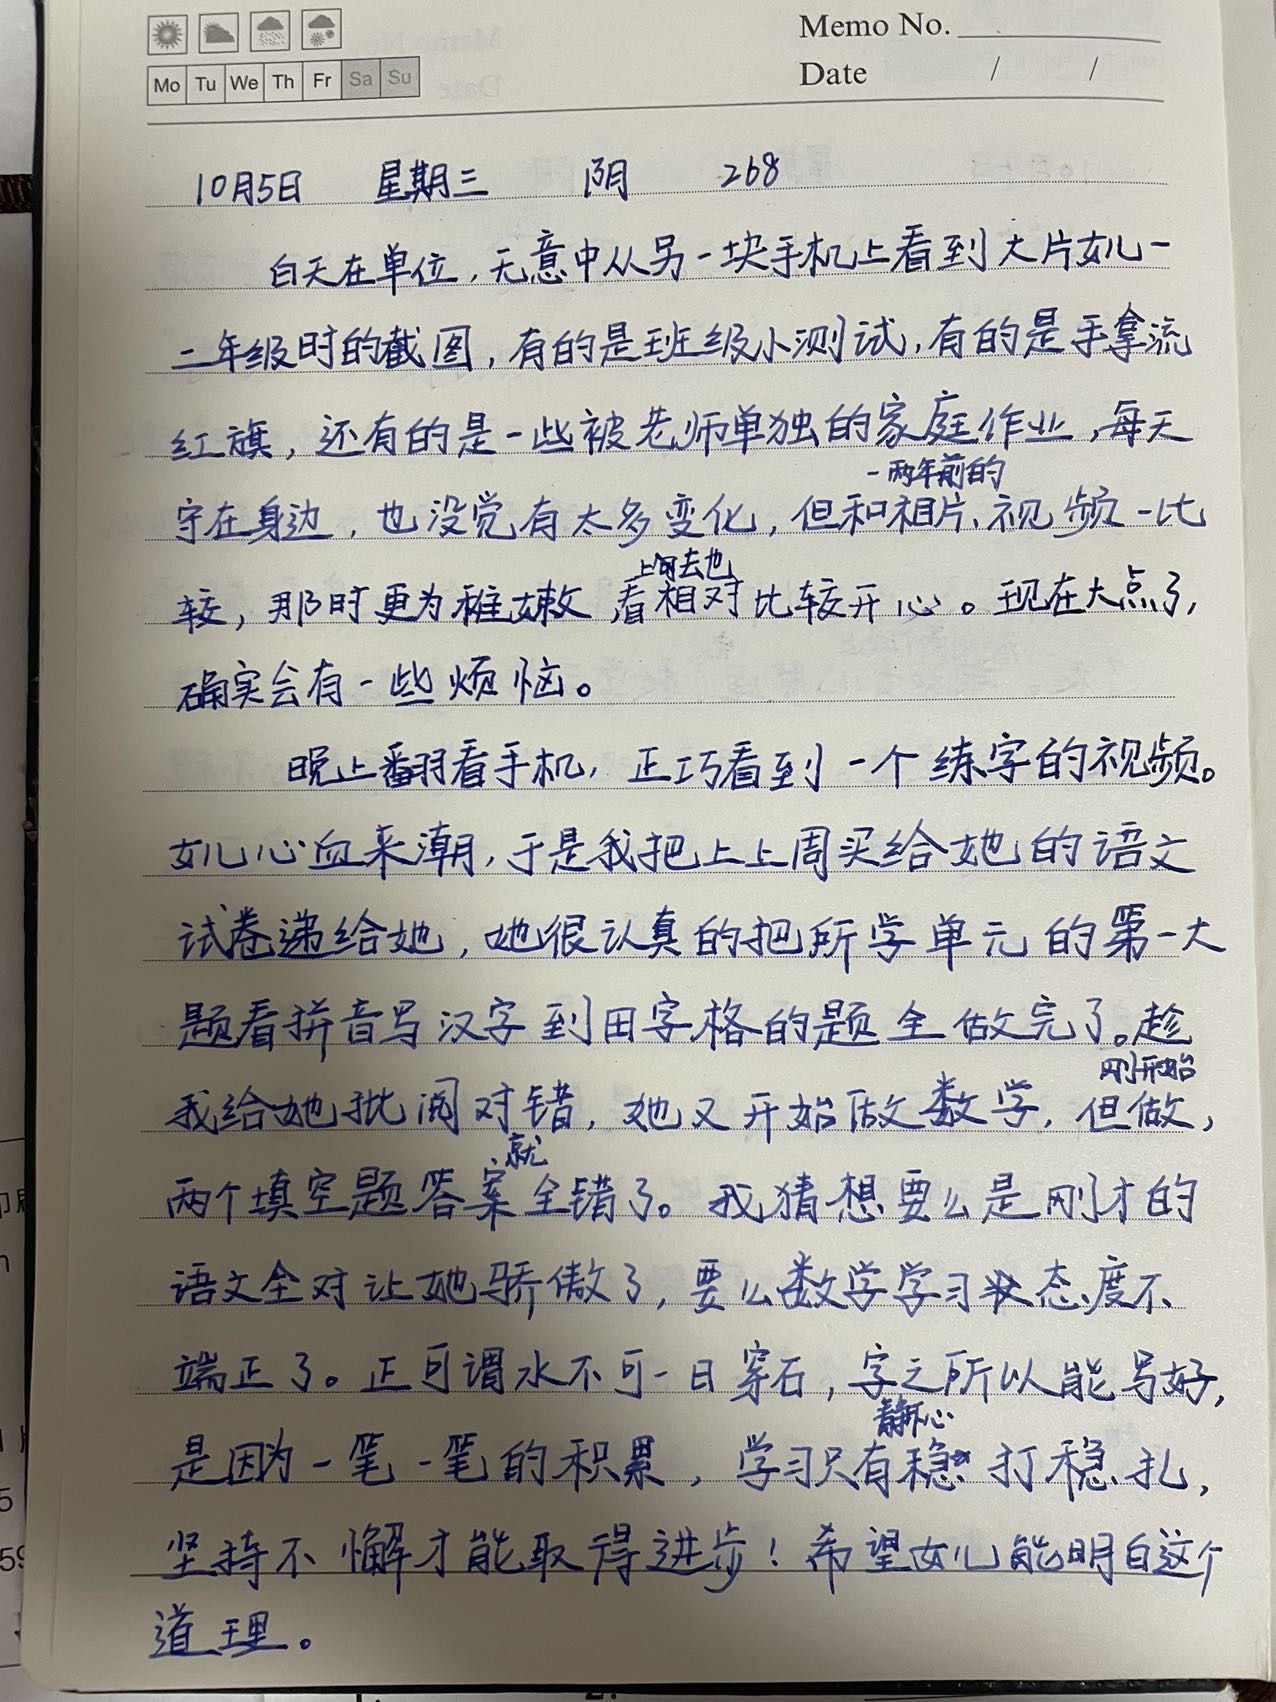 Memo No.
Mo Tu We Th Fr Sa Su
Date / /
10月5日 星期三 阴 268
白天在单位,无意中从另一块手机上看到大片女儿一
二年级时的截图,有的是班级小测试,有的是手拿流
红旗,还有的是一些被老师单独的家庭作业,每天
一两年前的
守在身边,也没觉有太多变化,但和相片、视频一比
上前去也
较,那时更为稚嫩,看相对比较开心。现在大点了,
确实会有一些烦恼。
晚上翻看手机,正巧看到一个练字的视频。
女儿心血来潮,于是我把上上周买给她的语文
试卷递给她,她很认真的把所学单元的第一大
题看拼音写汉字到田字格的题全做完了。趁
刚开始
我给她批阅对错,她又开始做数学,但做,
就
两个填空题答案全错了。我猜想要么是刚才的
语文全对让她骄傲了,要么数学学习状态、度不
端正了。正可谓水不可一日穿石,字之所以能写好,
静下心
是因为一笔一笔的积累,学习只有稳打稳扎,
坚持不懈才能取得进步!希望女儿能明白这个
道理。